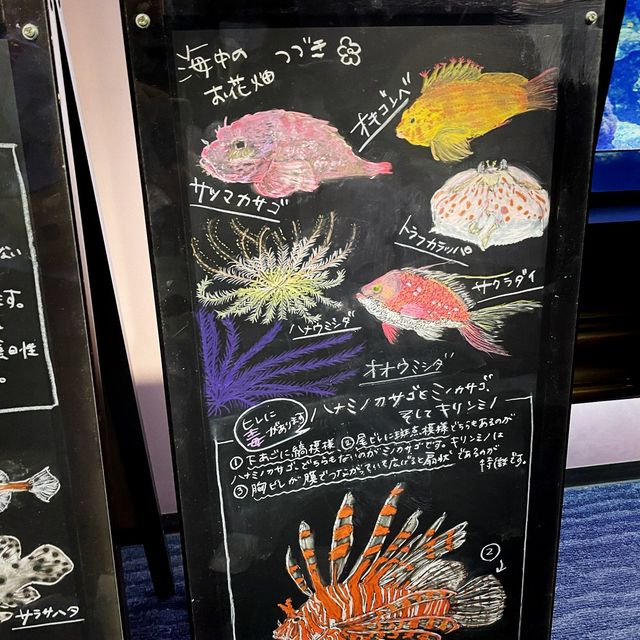 海中の つづき
お花畑
オキゴンベ
サツマカサゴ
トラフカラッパ
サクラダイ
ハナウミシダ
オオウミシダ
ヒレに
毒があります
ハナミノカサゴとミノカサゴ
そしてキリンミノ
① 下あごに縞模様 ② 尾ビレに斑点模様どちらもあるのが
ハナミノカサゴ、どちらもないのがミノカサゴです。キリンミノは
③ 胸ビレが膜でつながっていて広げると扇状であるのが
特徴です。
②
ない
ます。
性
サラサハタ